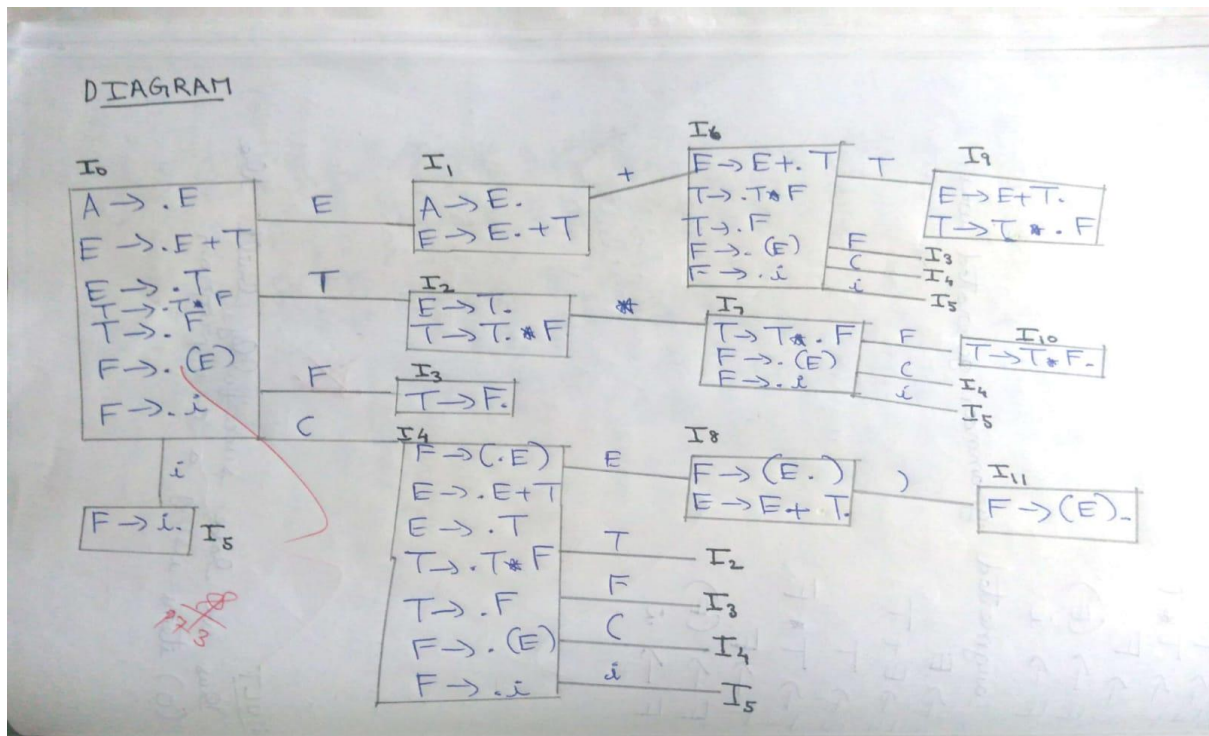 DIAGRAM
I0
A → .E
E → .E+T
E → .T
T → .T*F
T → .F
F → .(E)
F → .i
E
T
F
(
i
F → i.
I5
I1
A → E.
E → E.+T
+
I2
E → T.
T → T.*F
*
I3
T → F.
I4
F → (.E)
E → .E+T
E → .T
T → .T*F
T → .F
F → .(E)
F → .i
E
T
I2
F
I3
(
I4
i
I5
I6
E → E+.T
T → .T*F
T → .F
F → .(E)
F → .i
T
F
I3
(
I4
i
I5
I7
T → T*.F
F → .(E)
F → .i
F
(
I4
i
I5
I8
F → (E.)
E → E+T.
)
I9
E → E+T.
T → T*.F
I10
T → T*F.
I11
F → (E).